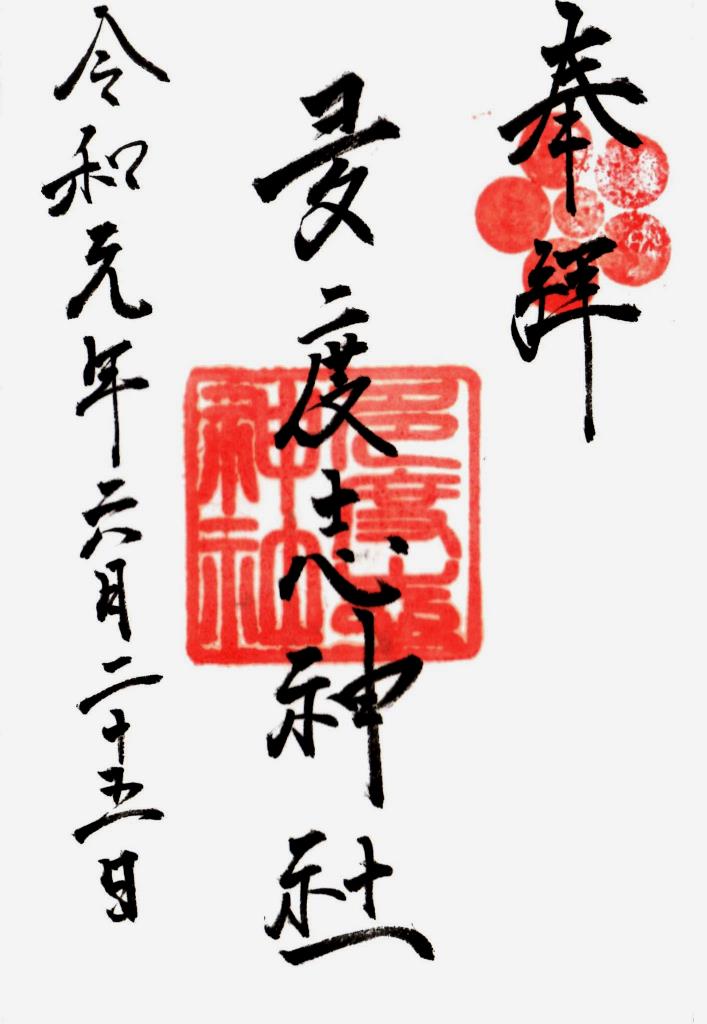 奉拝
夛度志神社
令和元年六月二十五日
多度志
神社